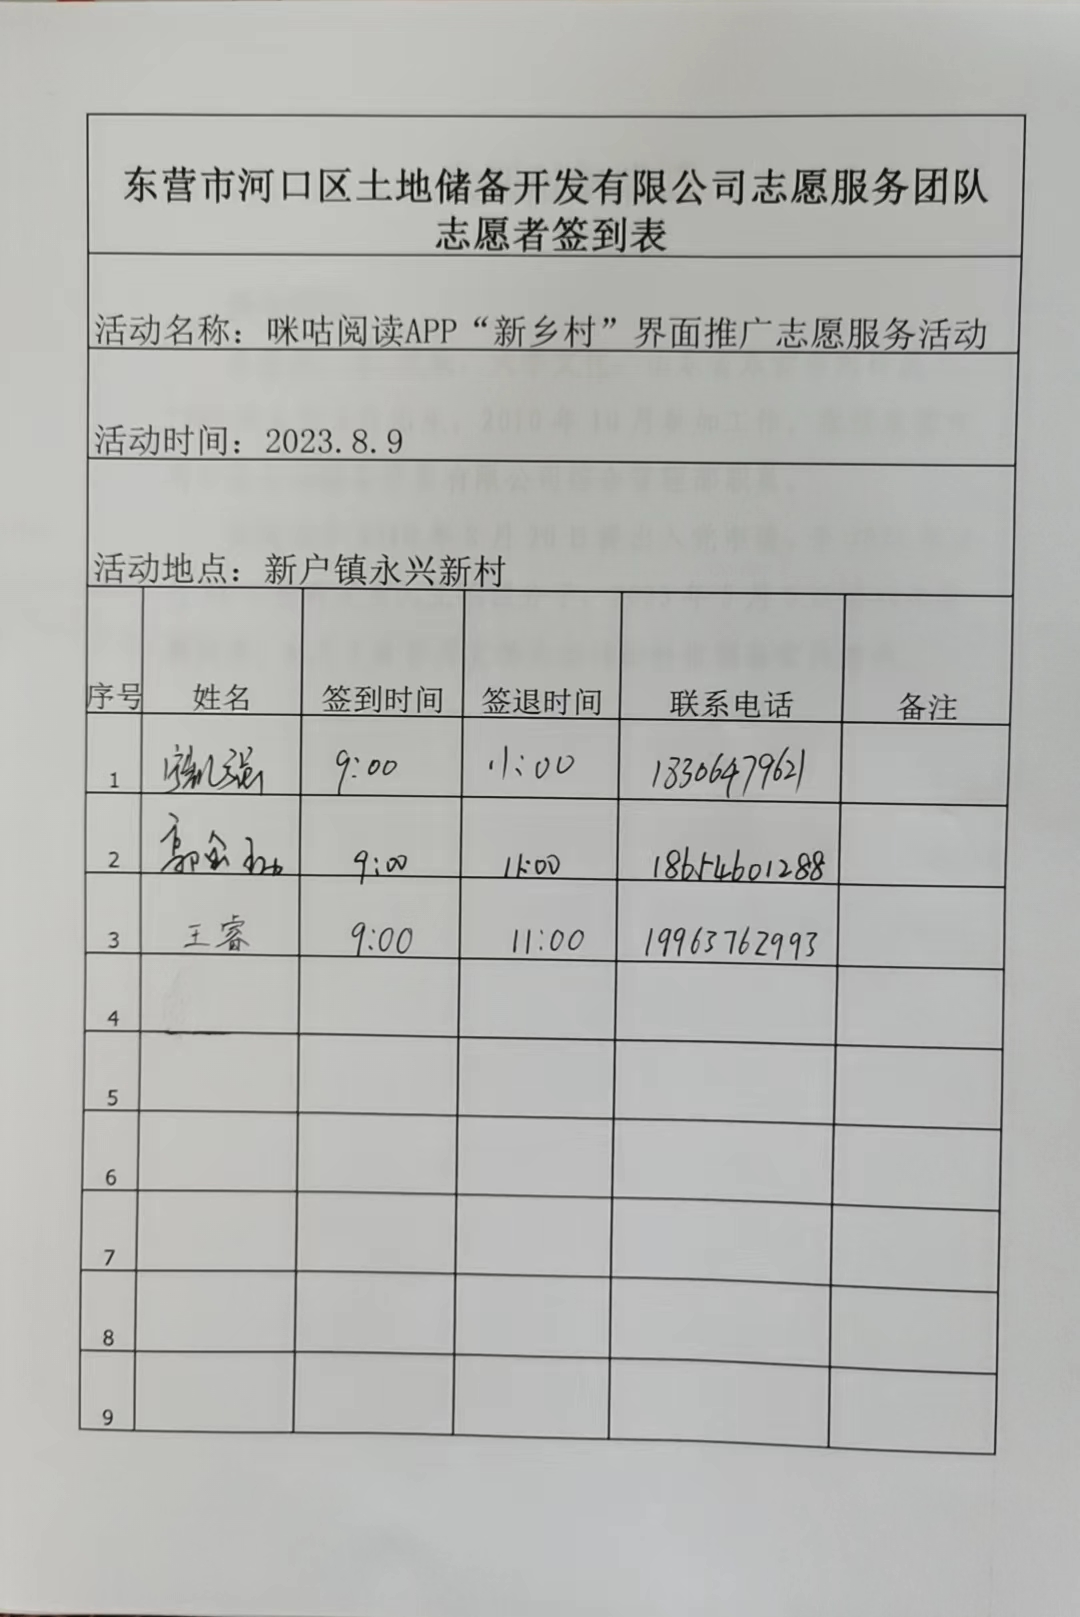 东营市河口区土地储备开发有限公司志愿服务团队
志愿者签到表
活动名称：咪咕阅读APP“新乡村”界面推广志愿服务活动
活动时间：2023.8.9
活动地点：新户镇永兴新村
序号 姓名 签到时间 签退时间 联系电话 备注
1 9:00 11:00 18306479621
2 9:00 11:00 18654601288
3 王睿 9:00 11:00 19963762993
4
5
6
7
8
9